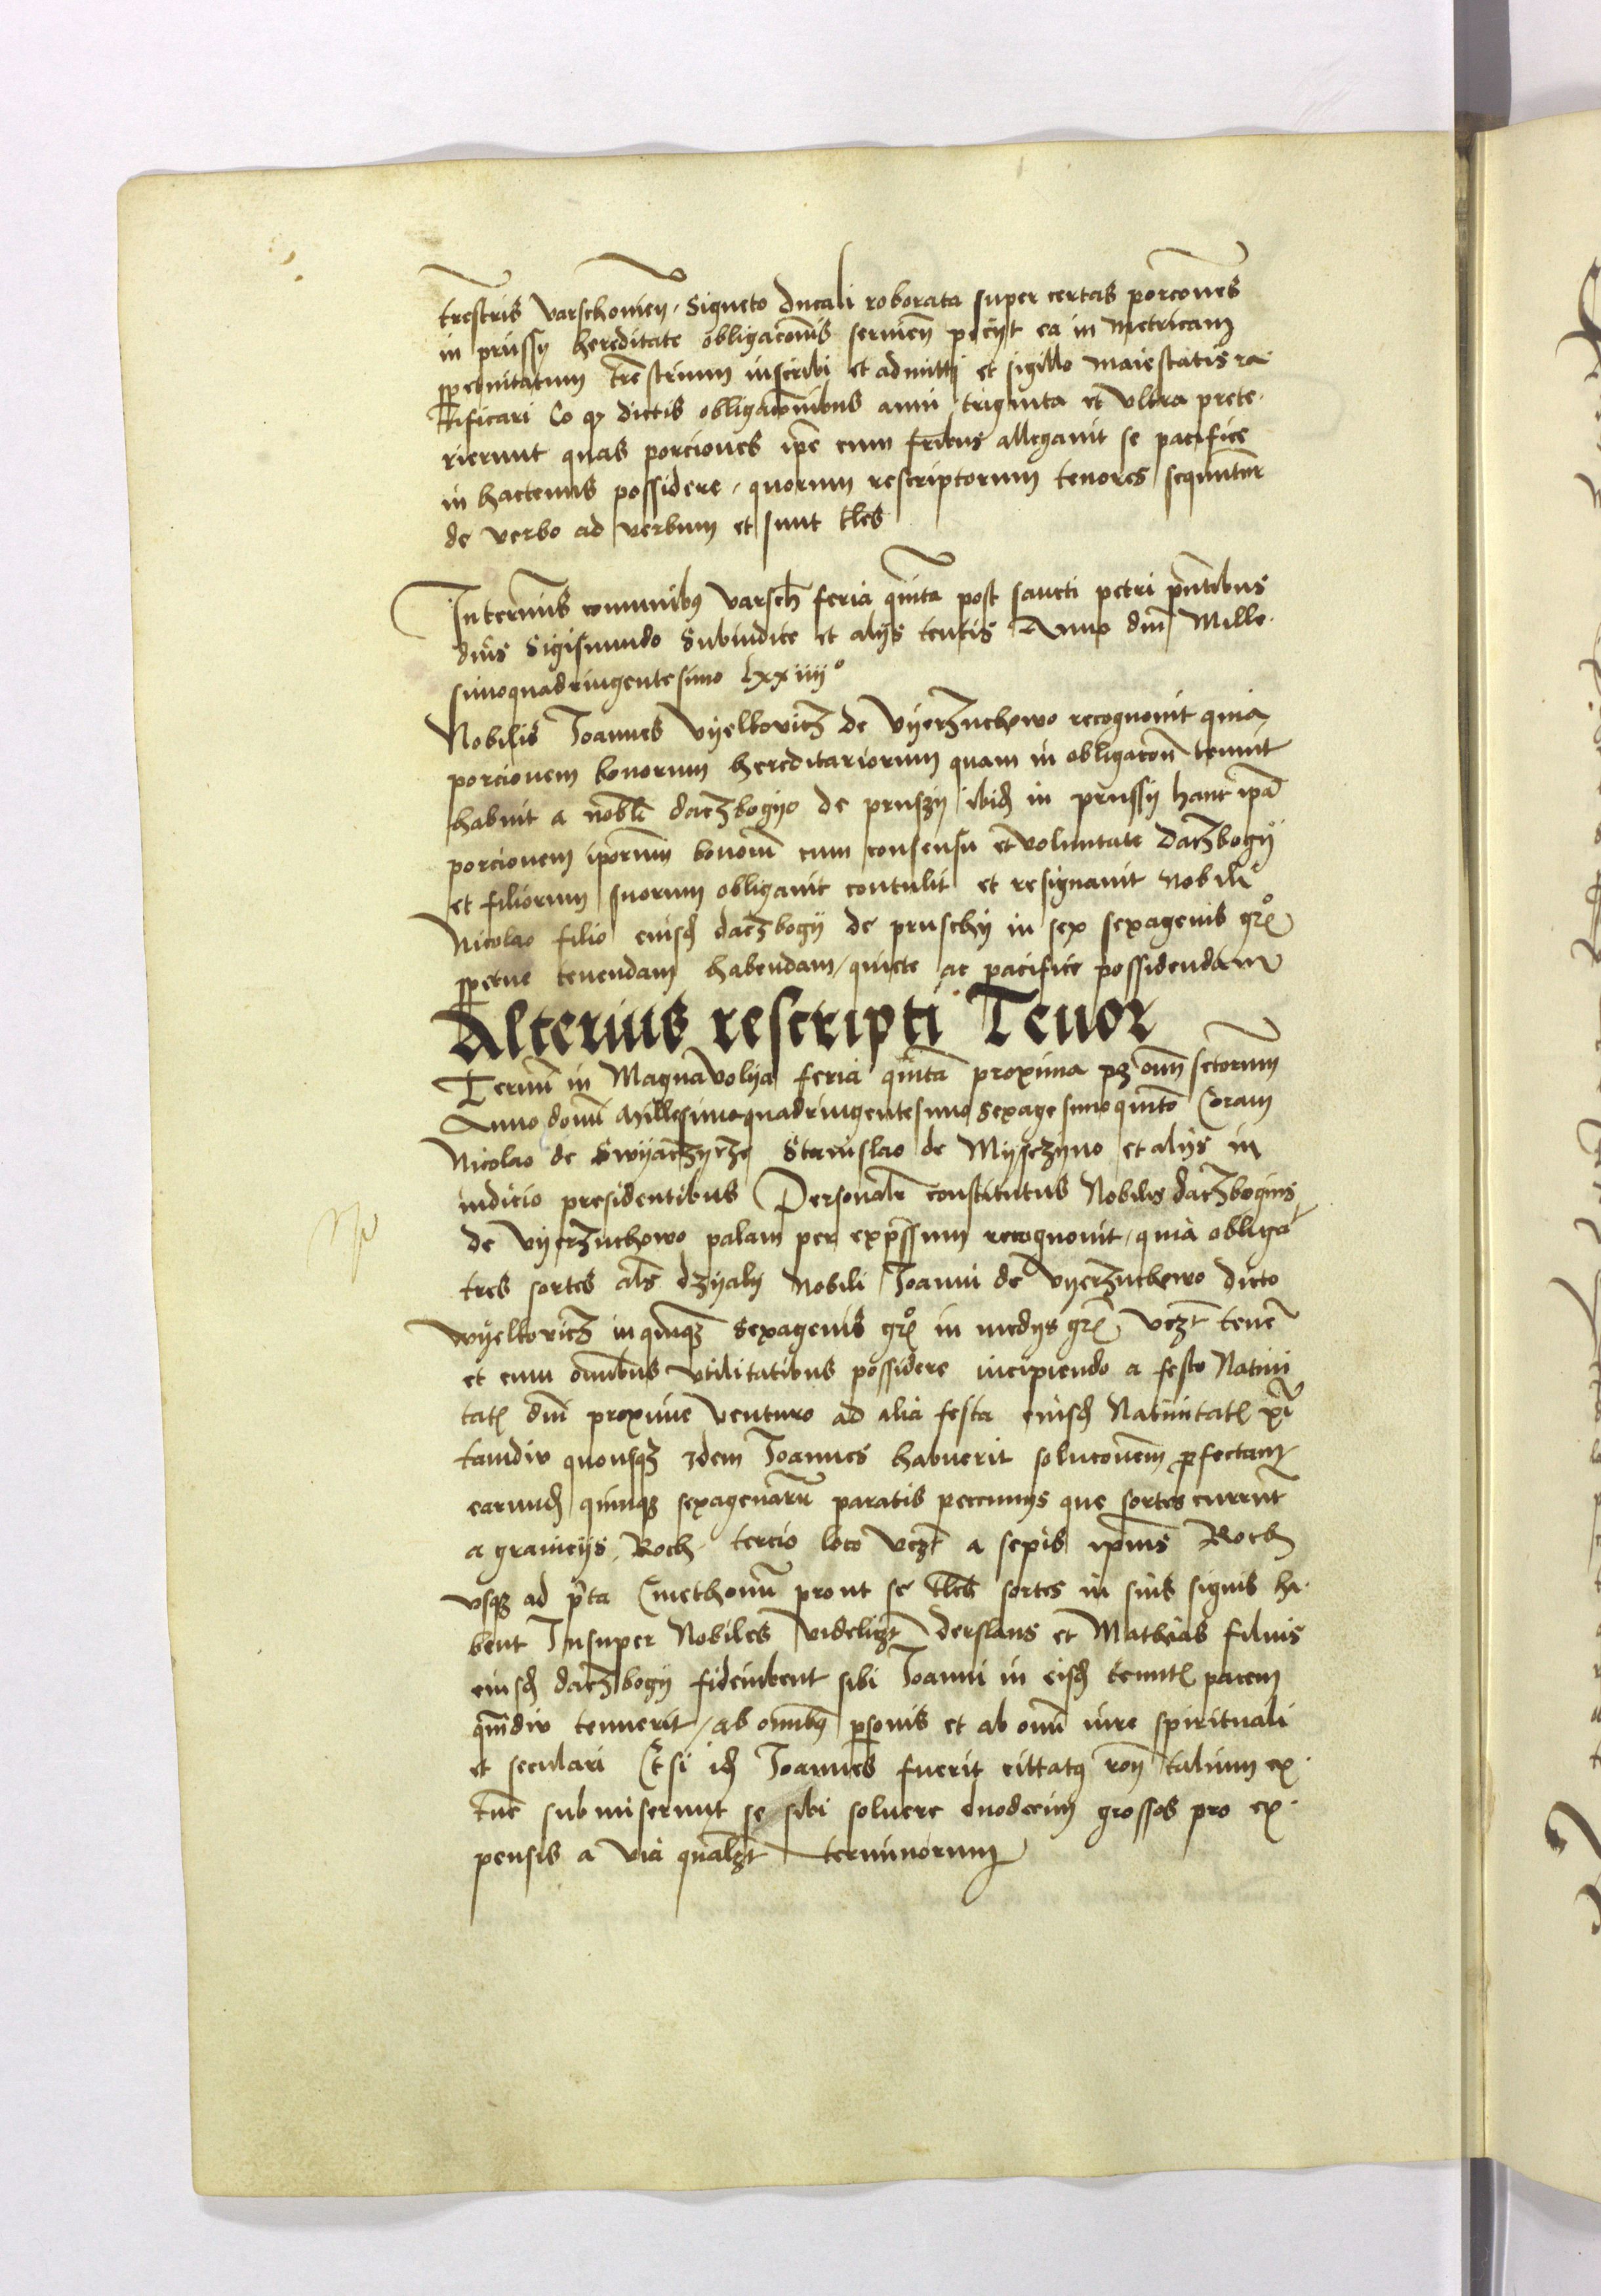 trestris varschouien. Signeto ducali roborata super certas porcones
in prussy hereditate obligaconis servien petyt ea in metricam
perpetuitatum trestrium inscribi et admitti et sigillo maiestatis ra
tificari Eo qz dictis obligaconibus anni triginta et ultra prete.
rierunt quas porciones ipse cum fribus allegavit se pacifice
in hactenus possidere, quorum rescriptorum tenores sequuntur
de verbo ad verbum et sunt tles
In terminis comunibus varsch feria quinta post sancti petri pntibus
dnis Sigismundo Subiudice et alys tentis Anno dni Mille.
simoquadringentesimo lxxiiiio
Nobilis Joannes Vyelkovicz de Vyerzuchowo recognovit quia
porcionem bonorum hereditariorum quam in obligacon tenuit
habuit a nobli daczbogyo de pruszy ibid in prussy hanc ipa
porcionem iporum bonorum cum consensu et voluntate Daczbogy
et filiorum suorum obligavit contulit et resignavit Nobili
Nicolao filio eiusd daczbogy de pruschy in sex sexagenis gro
perpetue tenendam habendam, quiete ac pacifice possidendam
Alterius rescripti Tenor
Termi in Magnavolya feria quinta proxima pz omn sctorum
Anno domi Millesimoquadringentesimo Sexagesimoquinto Coram
Nicolao de Swyaczycze Stanislao de Myszyno et alys in
iudicio presidentibus Personalr constitutus Nobilis daczbogius
de Vyerzuchowo palam per expssum recognovit, quia obliga
tres sortes als dzyaly Nobili Joanni de Vyerzuchowo dicto
Wyelkovicz in quinqz Sexagenis gro in medys gro vczt tene
et cum omibus utilitatibus possidere incipiendo a festo Nativi
tatis dni proxime venturo ad alia festa eiusd Nativitatis xi
tamdiu quousqz idem Joannes habuerit solucionem perfectam
earund quinqz sexagenaru paratis peccunys que sortes currut
a granicys Roch. tercio loco vczt a sepis ipius Roch
usqz ad pta Cmethonum prout se tles sortes in suis signis ha.
bent Insuper Nobiles Videliczt Derslaus et Mathias filius
eiusd daczbogy fideiubent sibi Joanni in eisd tenutis pacem
qmdiu tenuerit, ab omibus psonis et ab omi iure spirituali
et seculari Et si id Joannes fuerit cittatus ron talium ex.
tuc submiserunt se sibi solvere duodecim grossos pro ex.
pensis a via qualzt terminorum